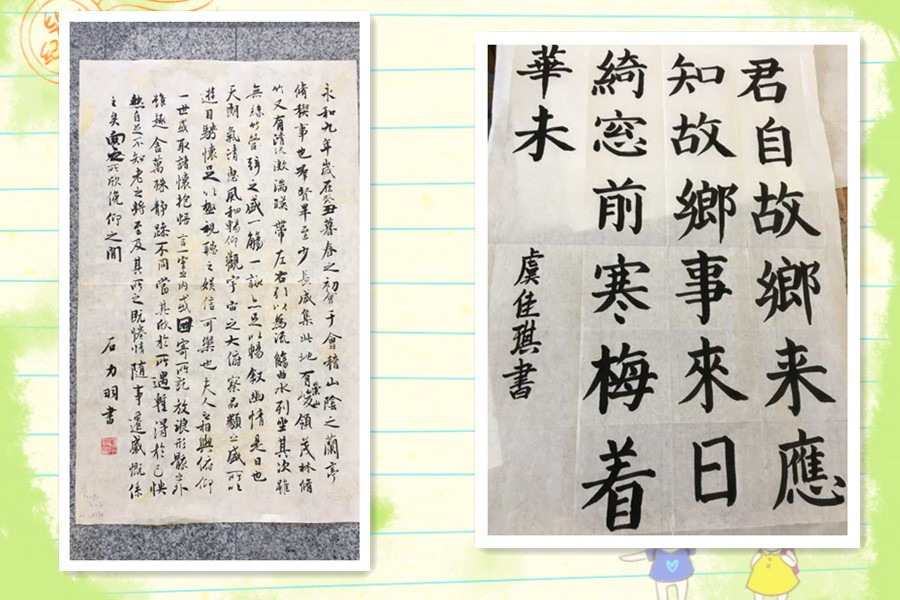 永和九年歲在癸丑暮春之初會于會稽山陰之蘭亭
脩稧事也羣賢畢至少長咸集此地有崇山峻領茂林脩
竹又有清流激湍暎帶左右引以為流觴曲水列坐其次雖
無絲竹管弦之盛一觴一詠亦足以暢叙幽情是日也
天朗氣清惠風和暢仰觀宇宙之大俯察品類之盛所以
遊目騁懷足以極視聽之娛信可樂也夫人之相與俯仰
一世或取諸懷抱悟言一室內或因寄所託放浪形骸之外
雖趣舍萬殊靜躁不同當其欣於所遇暫得於己快
然自足不知老之將至及其所之既惓情隨事遷感慨係
之矣向之所欣俛仰之間
石力羽書
君自故鄉来應
知故鄉事來日
綺窓前寒梅着
華未
虞佳琪書